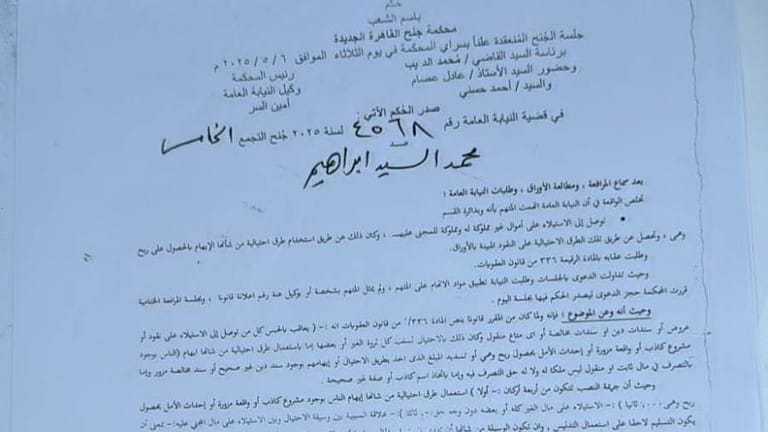 حكم
باسم الشعب
محكمة جنح القاهرة الجديدة
جلسة الجنح المنعقدة علناً بسراي المحكمة في يوم الثلاثاء الموافق ٢٠٢٥/٥/٦ م
برئاسة السيد القاضي / محمد الديب رئيس المحكمة
وحضور السيد الأستاذ / عادل عصام وكيل النيابة العامة
والسيد / أحمد حسني أمين السر
صدر الحكم الآتي
في قضية النيابة العامة رقم ٤٥٦٨ لسنة ٢٠٢٥ جنح التجمع الخامس
ضد
محمد السيد ابراهيم
بعد سماع المرافعة ، ومطالعة الأوراق ، وطلبات النيابة العامة :
تخلص الواقعة في أن النيابة العامة اتهمت المتهم بأنه وبدائرة القسم
• توصل إلى الاستيلاء على أموال غير مملوكة له ومملوكة للمجني عليهـ ، وكان ذلك عن طريق استخدام طرق احتيالية من شأنها الإيهام بالحصول على ربح
وهمى ، وتحصل عن طريق تلك الطرق الاحتيالية على النقود المبينة بالأوراق.
وطلبت عقابه بالمادة الرقيمة ٣٣٦ من قانون العقوبات.
وحيث تداولت الدعوى بالجلسات وطلبت النيابة تطبيق مواد الاتهام على المتهم ، ولم يمثل المتهم بشخصة أو بوكيل عنة رغم اعلانة قانونا ، وبجلسة المرافعة الختامية
قررت المحكمة حجز الدعوى ليصدر الحكم فيها بجلسة اليوم .
وحيث أنه وعن الموضوع : فإنه ولما كان من المقرر قانونا بنص المادة ١/٣٣٦ من قانون العقوبات انه :- ( يعاقب بالحبس كل من توصل إلى الاستيلاء على نقود أو
عروض أو سندات دين او سندات مخالصة أو اى متاع منقول وكان ذلك بالاحتيال لسلب كل ثروة الغير أو بعضها إما باستعمال طرق احتيالية من شانها ايهام الناس بوجود
مشروع كاذب أو واقعة مزورة أو إحداث الأمل بحصول ربح وهمى أو تسديد المبلغ الذى اخذ بطريق الاحتيال أو إيهامهم بوجود سند دين غير صحيح أو سند مخالصة مزور وإما
بالتصرف في مال ثابت او منقول ليس ملكا له ولا له حق التصرف فيه وإما باتخاذ اسم كاذب أو صفة غير صحيحة .
وحيث أن جريمة النصب تتكون من أربعة أركان :- أولا ) استعمال طرق احتيالية من شأنها إيهام الناس بوجود مشروع كاذب أو واقعة مزورة أو إحداث الأمل بحصول
ربح وهمى ... ثانيا ) :- الاستيلاء على مال الغير كله أو بعضه دون وجه حق .- ثالثا ) :- علاقة السببية بين وسيلة الاحتيال وبين الاستيلاء على مال المجني عليه :- بمعنى أن
يكون التسليم لاحقا على استعمال التدليس ، وان تكون الوسيلة من شأنها